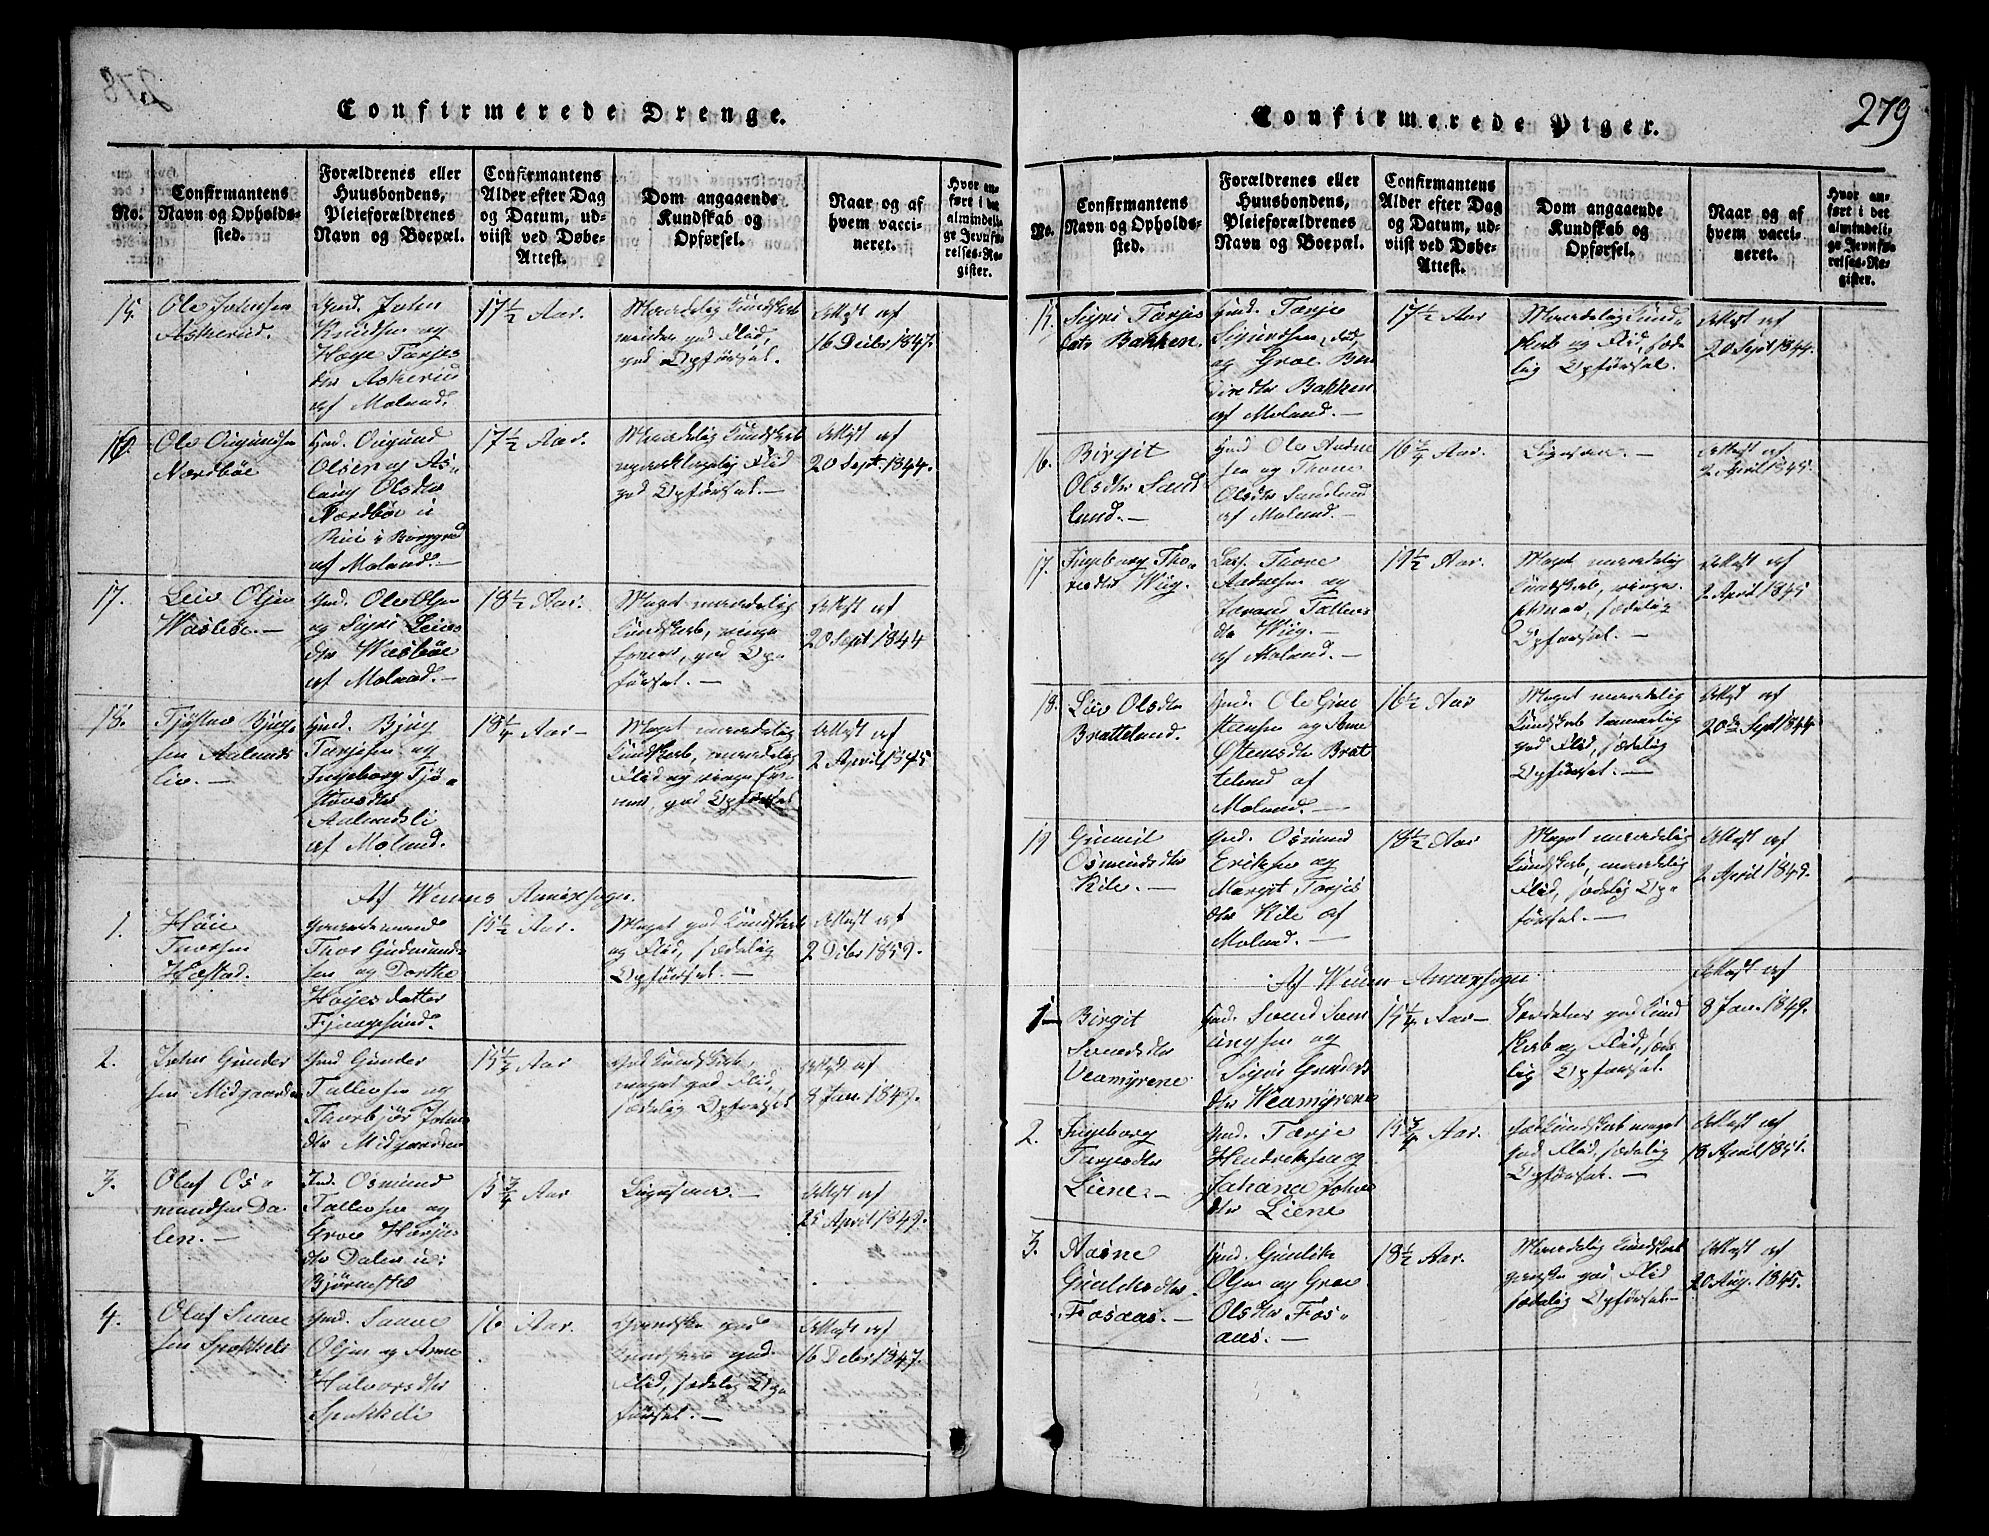 Confirmerede Drenge.
No.
Confirmantens
Navn og Opholds-
sted.
Forældrenes eller
Huusbondens,
Pleieforældrenes
Navn og Boepæl.
Confirmantens
Alder efter Dag
og Datum, ud-
viist ved Døbe-
Attest.
Dom angaaende
Kundskab og
Opførsel.
Naar og af
hvem vacci-
neret.
Hvor an-
ført i det
almindeli-
ge Jevnfø-
relses-Re-
gister.
15.
Ole Johnsen
Askerud.
Gmd. John
Knudsen og
Hæge Tarjes
dtr Askerud
af Moland.
17½ Aar.
Maadelig Kundskab
god Flid,
god Opførsel.
Attest af
16 Decbr 1847.
16.
Ole Augundsen
Nordbøe
Gmd. Augund
Olsen og As-
laug Olsdtr
Nordbøe
af Moland.
17½ Aar.
Maadelig Kundskab
Flid
god Opførsel.
Attest af
20 Sept. 1844.
17.
Leiv Olsen
Wasbøe.
Gmd. Ole Olsen
og Sigri Leivs
dtr Wasbøe
af Moland.
18½ Aar.
Meget maadelig
Kundskab, ringe
Evner, god Op-
førsel.
Attest af
20 Sept 1844
18.
Tjøstov Bjug-
sen Aalunds
liv.
Gmd. Bjug
Tarjesen og
Ingeborg Tjø-
stovsdtr
Aalundsli
af Moland.
18¼ Aar
Meget maadelig
Kundskab, maadelig
Flid og ringe Ev-
ner, god Opførsel
Attest af
2 April 1845
Af Weums Annexsogn.
1.
Høie
Thorsen
Høstad.
Gaardmand
Thor Gudmund-
sen og Dorthe
Høyesdatter
Fjaagesund.
15½ Aar.
Meget god Kundskab
og Flid, sædelig
Opførsel.
Attest af
2 Decbr 1859.
2.
John Gunder
sen Midgaarden
Gmd. Gunder
Tallevsen og
Thorbjør Johns
dtr Midgaarden
15½ Aar
God Kundskab,
meget god Flid,
sædelig Opførsel
Attest af
8 Jan. 1849.
3.
Oluf Os-
mundsen Da-
len.
Ind. Osmund
Tallevsen og
Groe Høljes
dtr Dalen u:
Bjørnstad
15¾ Aar
Ligesaa.
Attest af
25 April 1849.
4.
Oluf Saave
sen Spokkeli
Gmd. Saave
Olsen og Anne
Halvorsdtr
Spokkeli
16 Aar.
Ganske god
Kundskab god
Flid, sædelig Op-
førsel.
Attest af
16 Decbr 1847.
279
Confirmerede Piger.
No.
Confirmantens
Navn og Opholds-
sted.
Forældrenes eller
Huusbondens,
Pleieforældrenes
Navn og Boepæl.
Confirmantens
Alder efter Dag
og Datum, ud-
viist ved Døbe-
Attest.
Dom angaaende
Kundskab og
Opførsel.
Naar og af
hvem vacci-
neret.
Hvor an-
ført i det
almindeli-
ge Jevnfø-
relses-Re-
gister.
15.
Sigri Tarjes
datr Bakken.
Gmd. Tarje
Sigurdsen, død,
og Groe
Bakken
af Moland.
17½ Aar
Maadelig Kund-
skab og Flid, sæde
lig Opførsel.
Attest af
20 Sept 1844.
16.
Birgit
Olsdtr Sand
lund.
Gmd Ole Aadne
sen og Thone
Olsdtr Sandlund
af Moland.
16¾ Aar.
Ligesaa.
Attest af
2 April 1845.
17.
Ingeborg Tho-
resdtr Wiig.
Thore
Aadnesen og
Tallevs
dtr Wiig.
af Moland.
19½ Aar.
Meget maadelig
Kundskab, ringe
Evner, sædelig
Opførsel.
Attest af
2 April 1845
18.
Liv Olsdtr
Bratteland.
Gmd. Ole
og Anne
Østensdtr Brat
teland af
Moland.
16½ Aar
Meget maadelig
Kundskab temmelig
god Flid, sædelig
Opførsel.
Attest af
20de Sept 1844
19
Gunnil
Osmundsdtr
Kile.
Gmd. Osmund
Eriksen og
Margit Tarjes
dtr Kile af
Moland.
18½ Aar
Meget maadelig
Kundskab, maadelig
Flid, sædelig Op-
førsel.
Attest af
2 April 1845.
Af Weum Annexsogn
1
Birgit
Svendsdtr
Veamyrene
Gmd. Svend Svein
ungsen og
Sigri Gunders
dtr Weamyrene
15¼ Aar
Særdeles god Kund
skab og Flid, sæde
lig Opførsel.
Attest af
8 Jan. 1849.
2.
Ingeborg
Tarjesdtr
Liene.
Gmd. Tarje
Hendriksen og
Johane Johns
dtr Liene
15¾ Aar.
God Kundskab meget
god Flid, sædelig
Opførsel.
Attest af
18 April 1851.
3.
Aasne
Gunleksdtr
Fosaas.
Gmd. Gunlik
Olsen og Groe
Olsdtr Fos-
aas.
18½ Aar.
Maadelig Kundskab
ganske god Flid
sædelig Opførsel.
Attest af
20 Aug. 1845.